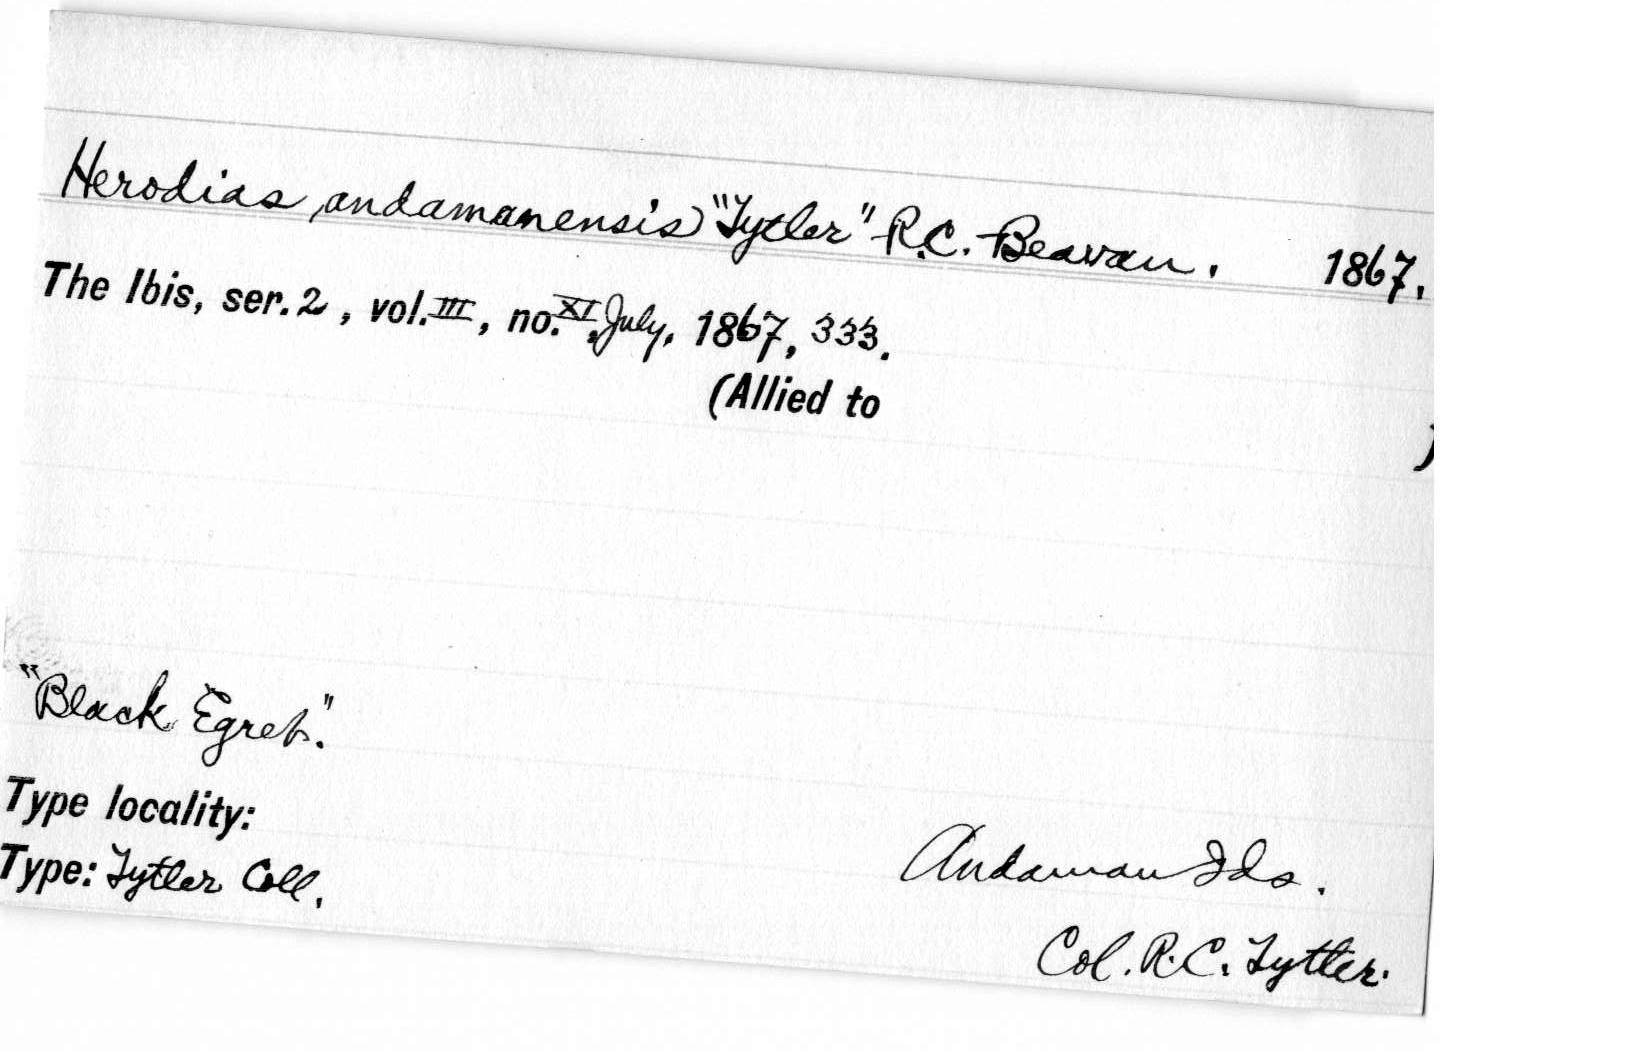 Herodias andamanensis "Tytler" R.C. Beavan. 1867.
The Ibis, ser. 2, vol. III, no. XI, July, 1867, 333.
(Allied to )
"Black Egret".
Type locality: Andaman Ids.
Type: Tytler Coll. Col. R.C. Tytler.